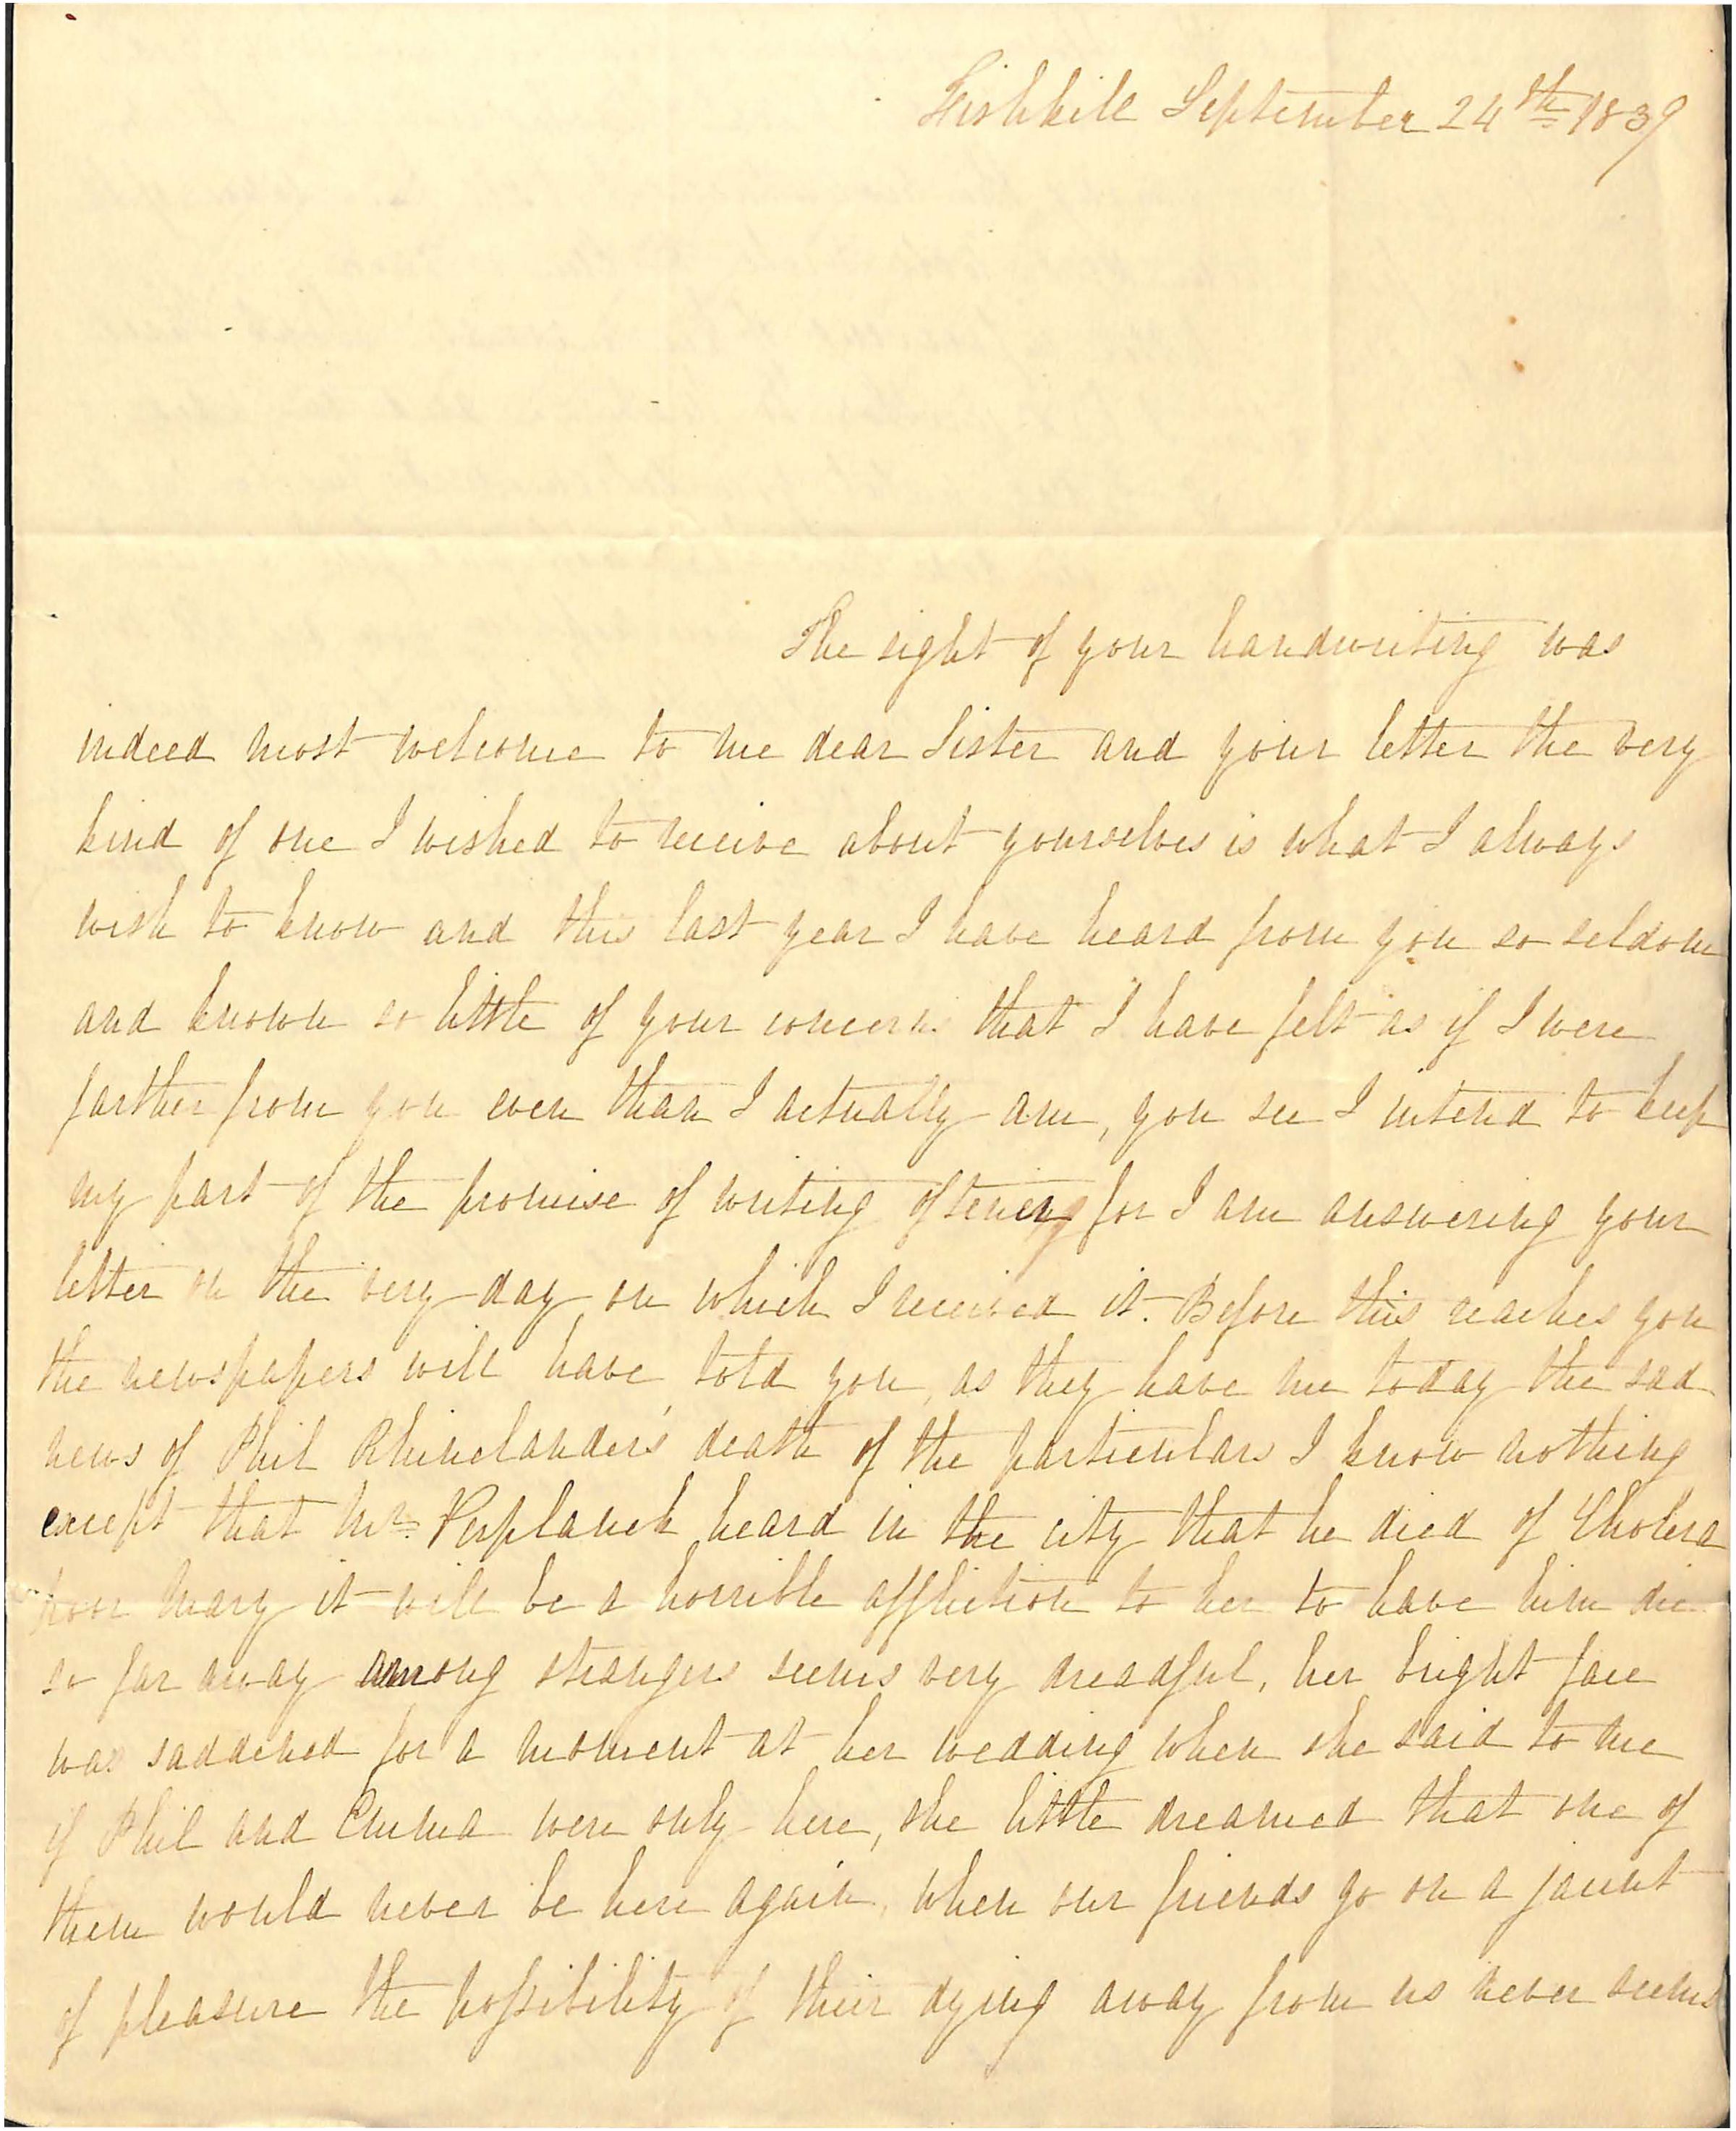 Fishkill September 24th 1839
The sight of your handwriting was
indeed most welcome to me dear Sister and your letter the very
kind of one I wished to receive about yourselves is what I always
wish to know and this last year I have heard from you so seldom
and known so little of your concerns that I have felt as if I were
farther from you even than I actually am, you see I intend to keep
my part of the promise of writing oftener for I am answering your
letter on the very day on which I received it. Before this reaches you
the newspapers will have told you, as they have me today the sad
news of Phil Rhinelander's death of the particulars I know nothing
except that Mr. Verplanck heard in the city that he died of Cholera
poor Mary it will be a horrible affliction to her to have him die
so far away among strangers seems very dreadful, her bright face
was saddened for a moment at her wedding when she said to me
if Phil and Emma were only here, she little dreamed that one of
them would never be here again, when our friends go on a jaunt
of pleasure the possibility of their dying away from us never seems